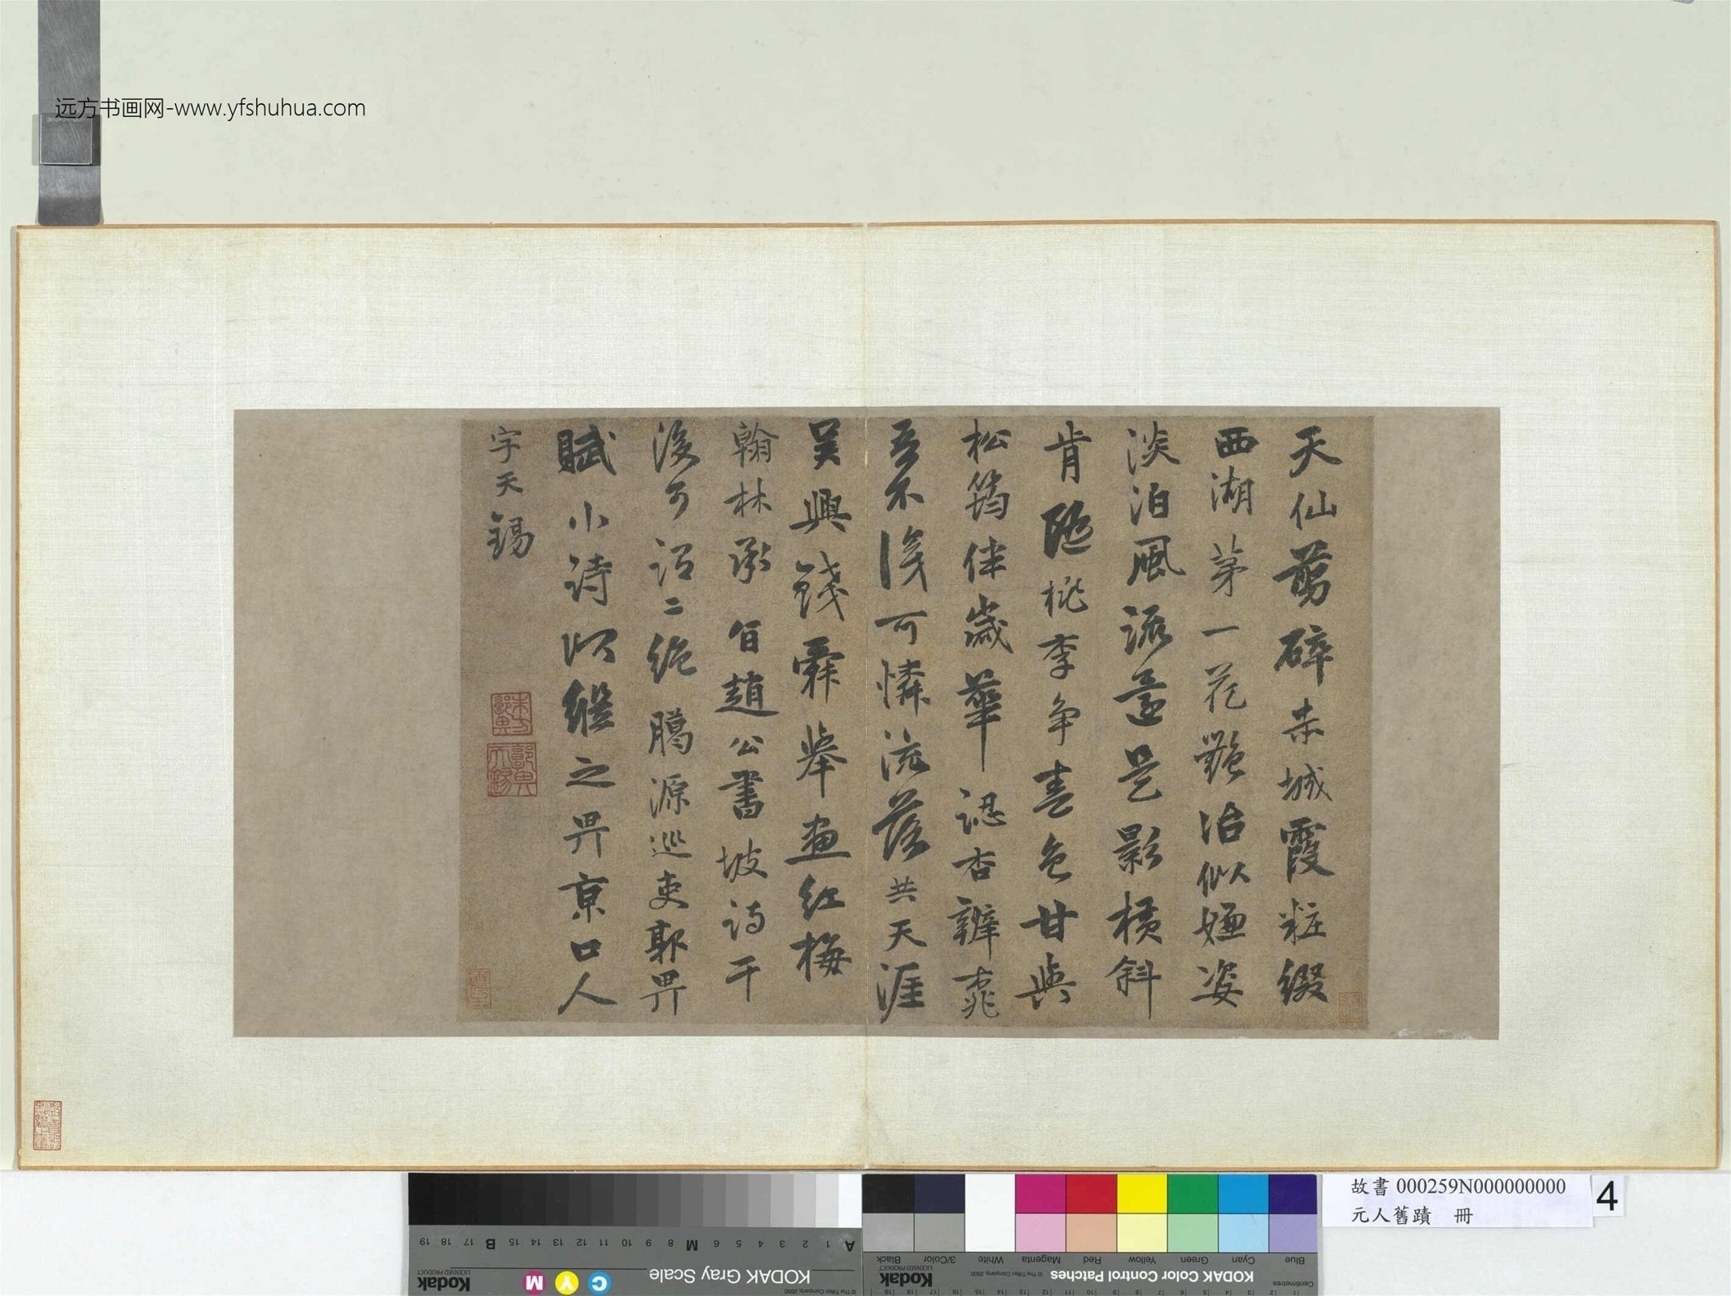 远方书画网-www.yfshuhua.com
天仙剪碎赤城霞粧綴
西湖第一花艷冶似嫌姿
淡泊風流還是影橫斜
肯隨桃李爭春色甘與
松筠伴歲華認杏辨
吾不淺可憐流落共天涯
吳興錢舜舉畫紅梅
翰林承旨趙公書坡詩于
後可謂二絕臈源巡吏郭畀
賦小詩以繼之畀京口人
字天錫
故書 000259N000000000
元人舊蹟 冊
4
KODAK Gray Scale
Kodak
LICENSED PRODUCT
C Y M
A 1 2 3 4 5 6 M 8 9 10 11 12 13 14 15 B 17 18 19
KODAK Color Control Patches
Kodak
LICENSED PRODUCT
Blue Cyan Green Yellow Red Magenta White 3/Color Black
Centimetres